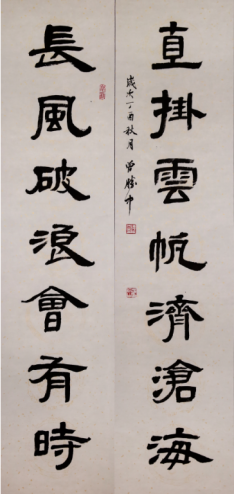 長風破浪會有時
直掛雲帆濟滄海
歲次丁酉秋月